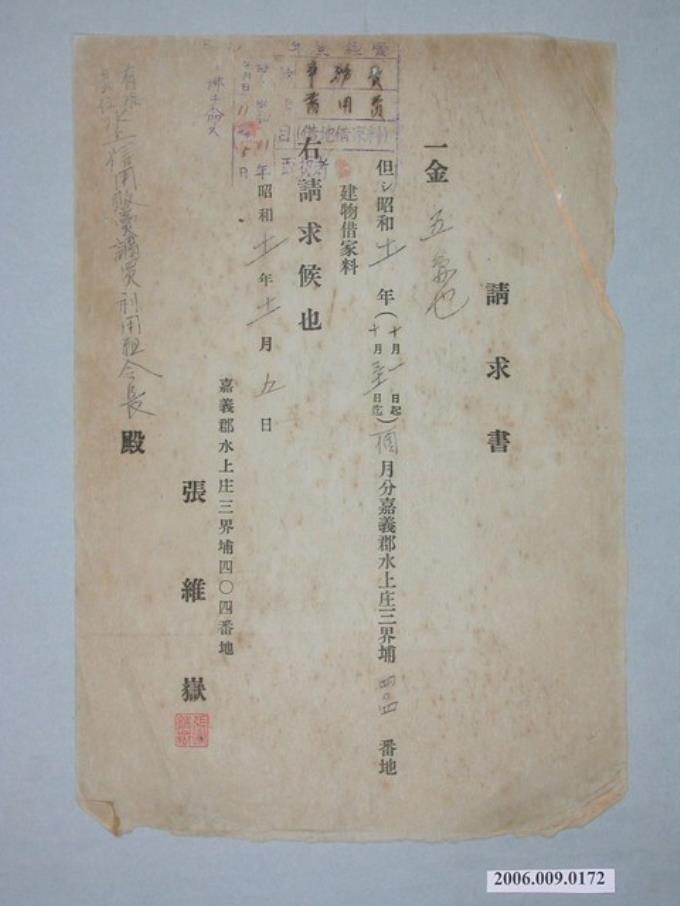 請求書
一金 五圓也
但シ昭和十一年(十月一日起十月三十一日迄)一個月分嘉義郡水上庄三界埔四〇四番地
建物借家料
右請求候也
昭和十一年十一月五日
嘉義郡水上庄三界埔四〇四番地
張維嶽
信用販賣購買利用組合長 殿
事務費
需用費
(借地借家料)
2006.009.0172